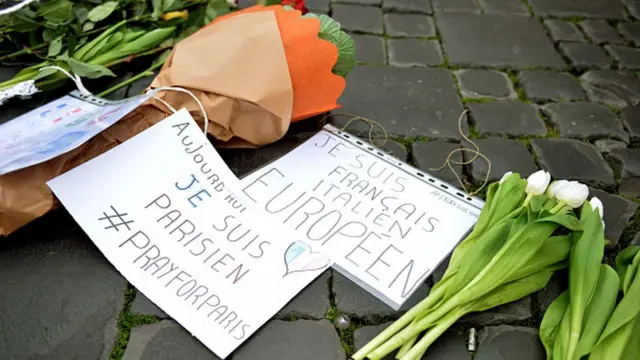 Aujourd'hui
JE SUIS
PARISIEN
#PRAYFORPARIS
JE SUIS
FRANÇAIS
ITALIEN
EUROPÉEN